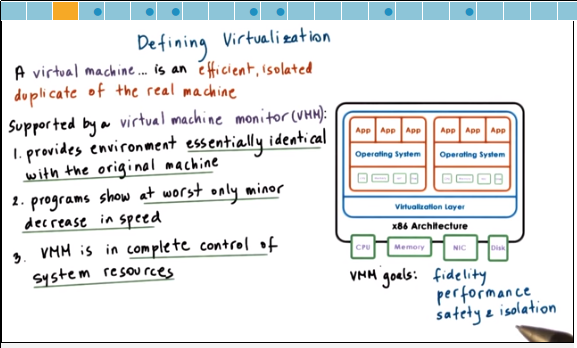 Defining Virtualization
A virtual machine... is an efficient, isolated
duplicate of the real machine
Supported by a virtual machine monitor (VMM):
1. provides environment essentially identical
with the original machine
2. programs show at worst only minor
decrease in speed
3. VMM is in complete control of
system resources
App App App App App App
Operating System Operating System
Virtualization Layer
x86 Architecture
CPU Memory NIC Disk
VMM goals: fidelity
performance
safety & isolation